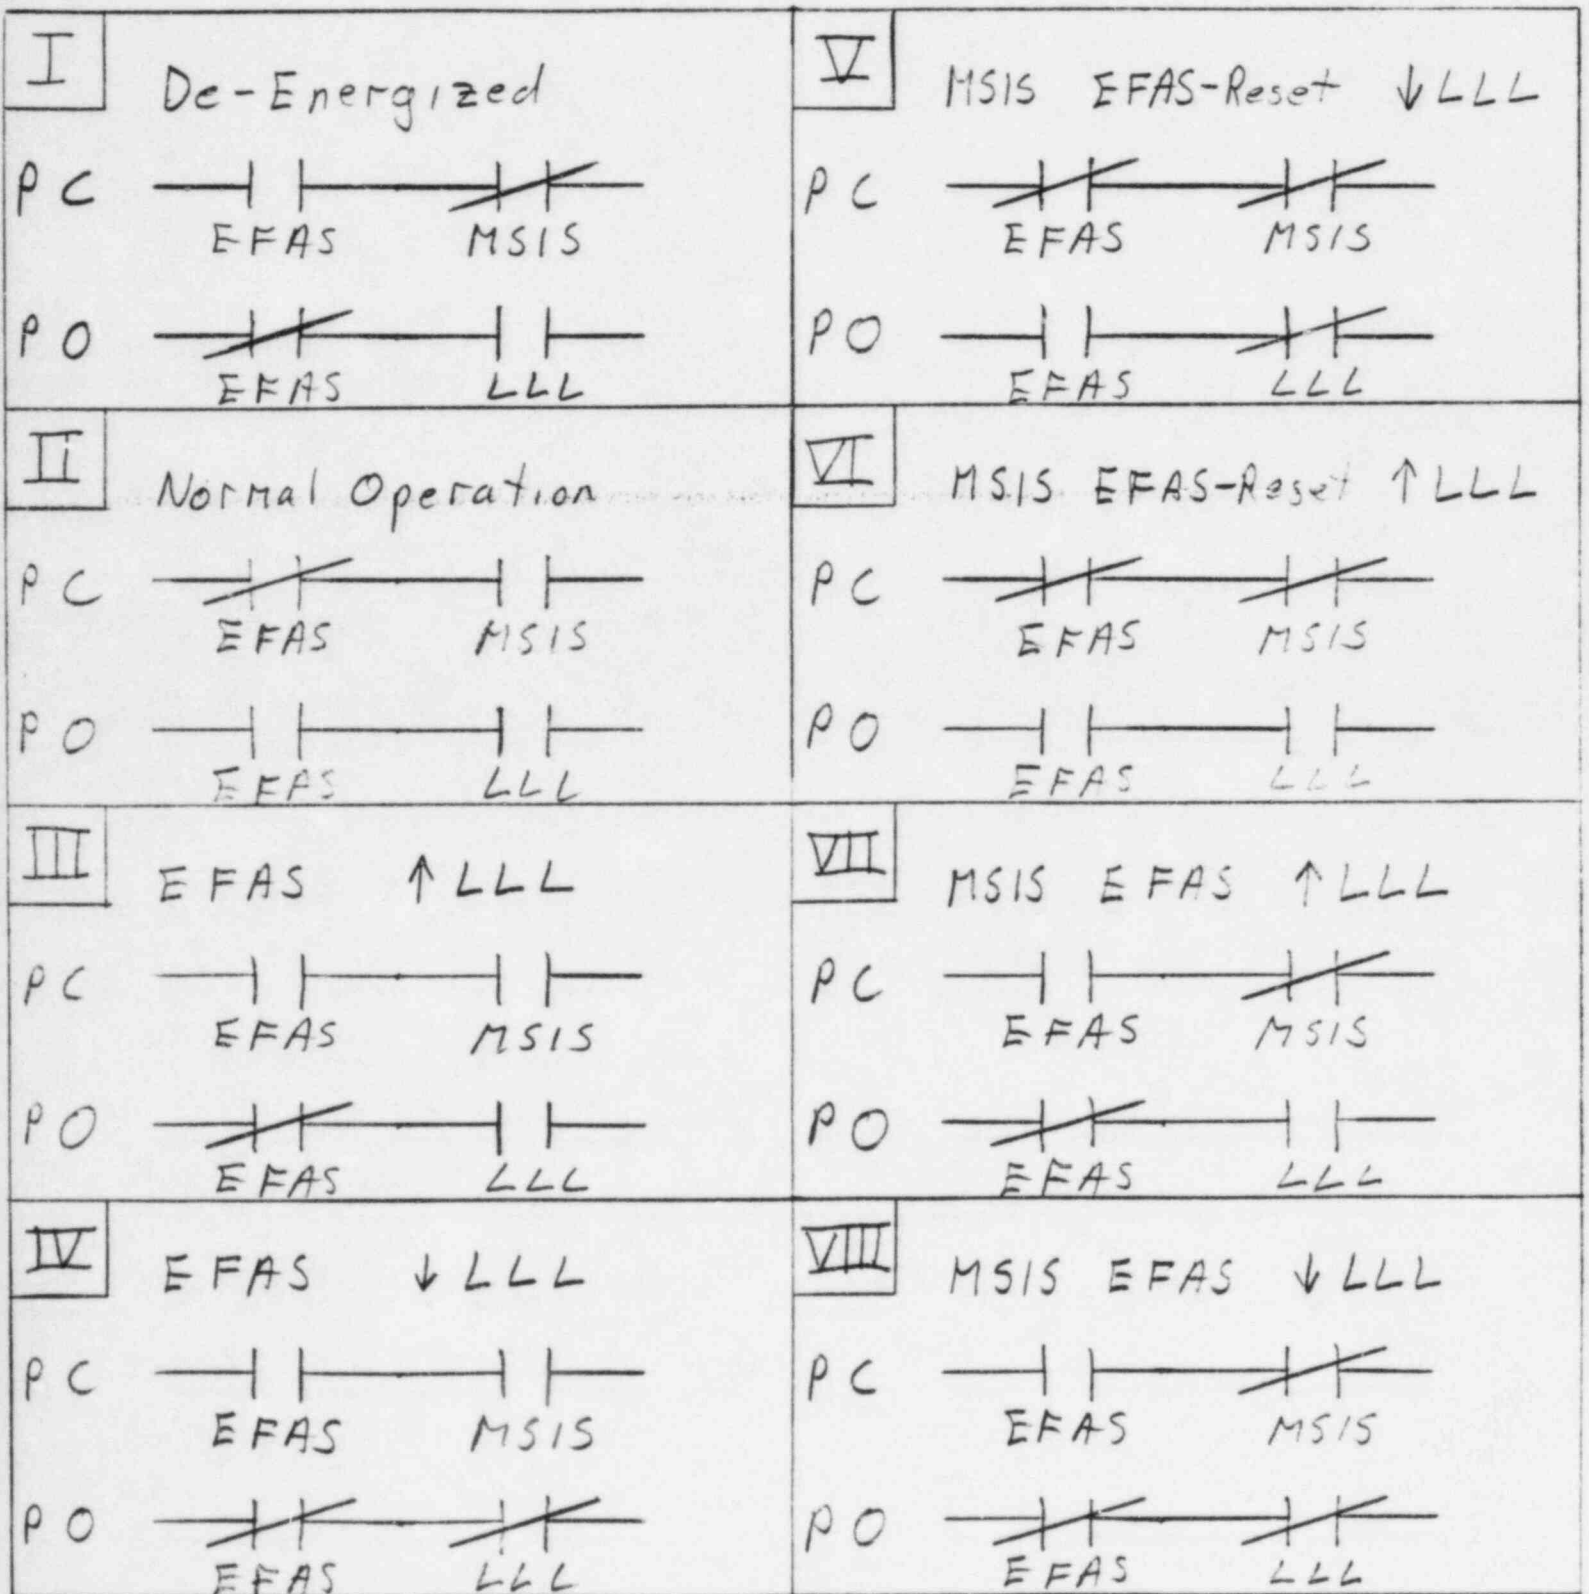 I
De-Energized
PC
EFAS MSIS
PO
EFAS LLL
II
Normal Operation
PC
EFAS MSIS
PO
EFAS LLL
III
EFAS ↑LLL
PC
EFAS MSIS
PO
EFAS LLL
IV
EFAS ↓LLL
PC
EFAS MSIS
PO
EFAS LLL
V
MSIS EFAS-Reset ↓LLL
PC
EFAS MSIS
PO
EFAS LLL
VI
MSIS EFAS-Reset ↑LLL
PC
EFAS MSIS
PO
EFAS LLL
VII
MSIS EFAS ↑LLL
PC
EFAS MSIS
PO
EFAS LLL
VIII
MSIS EFAS ↓LLL
PC
EFAS MSIS
PO
EFAS LLL